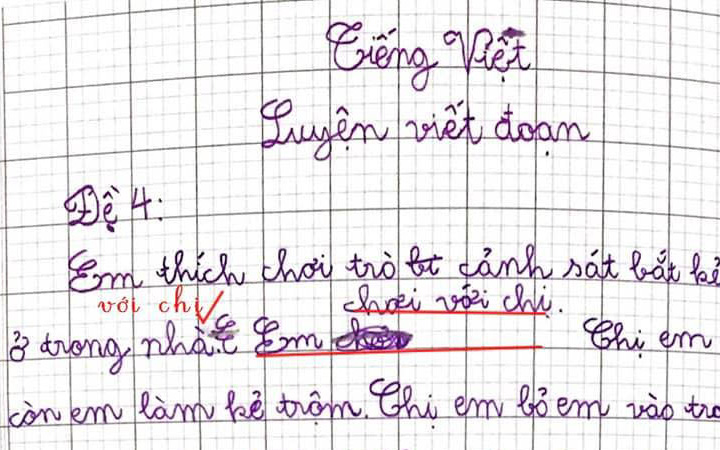 Tiếng Việt
Luyện viết đoạn
Đề 4:
Em thích chơi trò bt cảnh sát bắt kẻ
với chị chơi với chị.
ở trong nhà. Em Chị em
còn em làm kẻ trộm. Chị em bỏ em vào tro